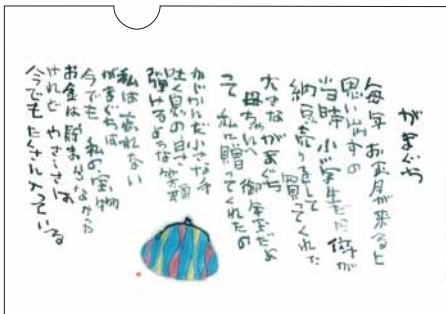 がまぐち
毎年 お正月が来ると
思い出すの
当時 小学生だった 倅が
納豆売りをして
買ってくれた
大きながまぐち
母ちゃんへ 御年玉だよ
って 私に贈ってくれたの
かじかんだ小さな手
吐く息の白さ
弾けるような笑顔
私は忘れない
がまぐちは
今でも 私の宝物
お金は貯まらないけれど
やさしさは
今でも たくさん入っている